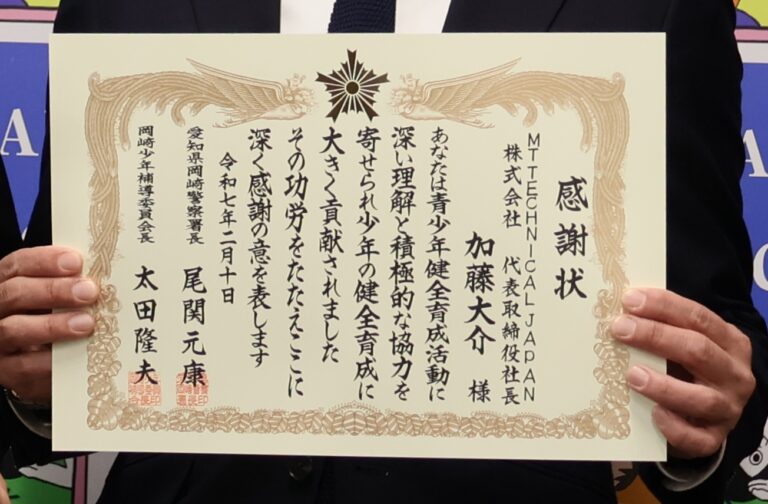 感謝状
MT TECHNICAL JAPAN
株式会社 代表取締役社長
加藤大介 様
あなたは青少年健全育成活動に
深い理解と積極的な協力を
寄せられ少年の健全育成に
大きく貢献されました
その功労をたたえここに
深く感謝の意を表します
令和七年二月十日
愛知県岡崎警察署長 尾関元康
岡崎少年補導委員会長 太田隆夫